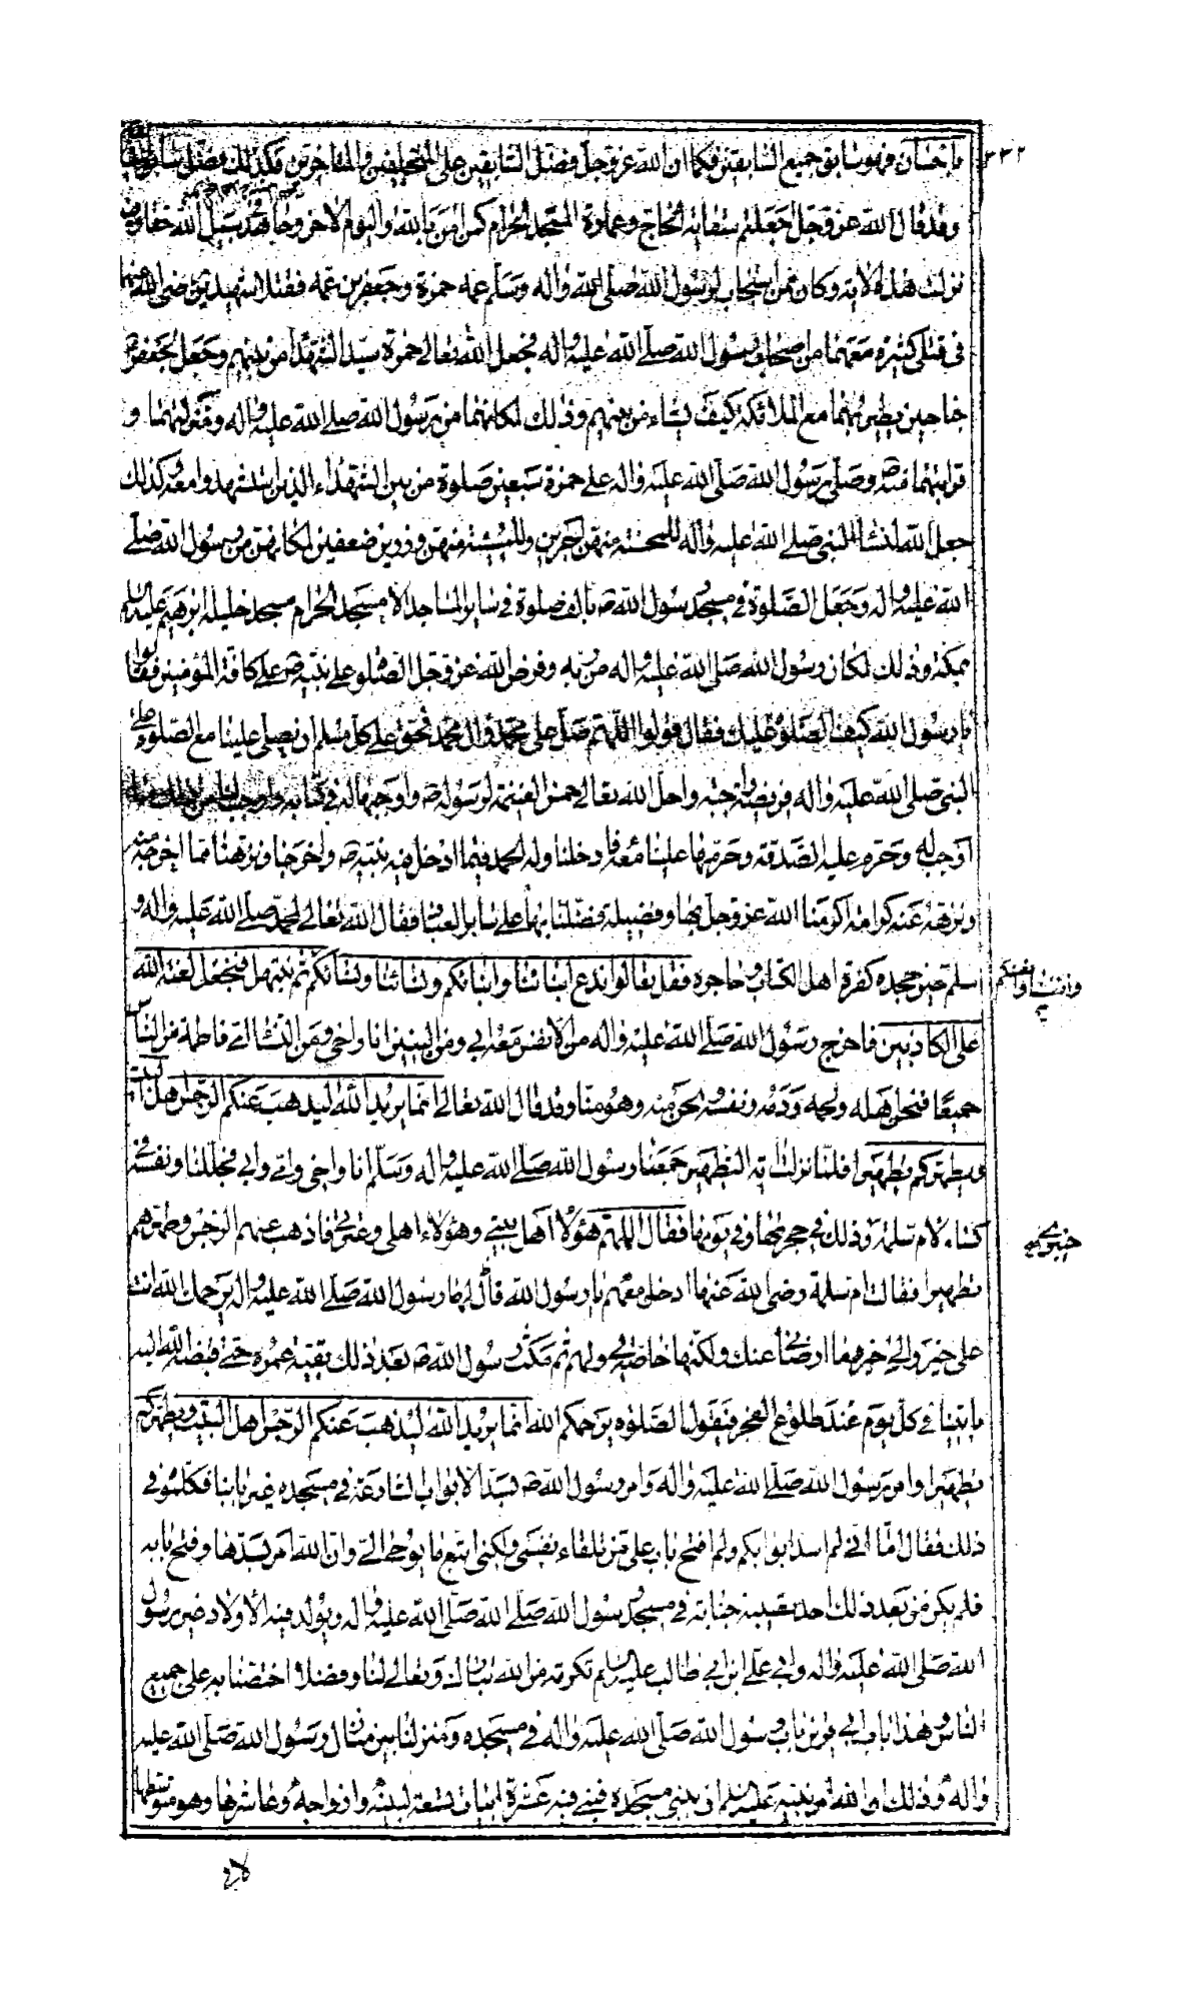 باحسان فهو سابق جميع السابقين فكما ان الله عز وجل فضل السابقين على المتخلفين والمتاخرين فكذلك فضل سابق
وقد قال الله عز وجل اجعلتم سقاية الحاج وعمارة المسجد الحرام كمن امن بالله واليوم الاخر وجاهد فى سبيل الله
نزلت هذه الاية وكان ممن استجاب لرسول الله صلى الله عليه واله وسلم عمه حمزة وجعفر بن عمه فقتلا شهيدين رضى الله عنهما
فى قتلى كثيرة معهما من اصحاب رسول الله صلى الله عليه واله فجعل الله تعالى حمزة سيد الشهداء من بينهم وجعل لجعفر
جناحين يطير بهما مع الملائكة كيف يشاء من بينهم وذلك لمكانهما من رسول الله صلى الله عليه واله ومنزلتهما و
قرابتهما منه ص وصلى رسول الله صلى الله عليه واله على حمزة سبعين صلوة من بين الشهداء الذين استشهدوا معه كذلك
جعل الله لنساء النبى صلى الله عليه واله للمحسنة منهن اجرين وللمسيئة منهن وزرين ضعفين لمكانهن من رسول الله صلى
الله عليه واله وجعل الصلوة فى مسجد رسول الله ص بالف صلوة فى ساير المساجد الا مسجد الحرام مسجد خليله ابرهيم عليه السلام
بمكة وذلك لمكان رسول الله صلى الله عليه واله من ربه وفرض الله عز وجل الصلوة على نبيه ص على كافة المؤمنين فقالوا
يا رسول الله كيف الصلوة عليك فقال قولوا اللهم صل على محمد وال محمد فحق على كل مسلم ان يصلى علينا مع الصلوة على
النبى صلى الله عليه واله فريضة واجبة واحل الله تعالى خمس الغنيمة لرسوله ص واوجبها له فى كتابه واوجب لنا من ذلك ما
اوجب له وحرم عليه الصدقة وحرمها علينا معه فادخلنا وله الحمد فيما ادخل فيه نبيه ص واخرجنا ونزهنا مما اخرجه منه
ونزهه عنه كرامة اكرمنا الله عز وجل بها وفضيلة فضلنا بها على ساير العباد فقال الله تعالى لمحمد صلى الله عليه واله و
سلم حين جحده كفرة اهل الكتاب وحاجوه فقل تعالوا ندع ابنائنا وابنائكم ونسائنا ونسائكم ثم نبتهل فنجعل لعنة الله
وانفسنا وانفسكم
على الكاذبين فاخرج رسول الله صلى الله عليه واله من الانفس معه ابى ومن البنين انا واخى ومن النساء امى فاطمة من الناس
جميعا فنحن اهله ولحمه ودمه ونفسه ونحن منه وهو منا وقد قال الله تعالى انما يريد الله ليذهب عنكم الرجس اهل البيت
ويطهركم تطهيرا فلما نزلت اية التطهير جمعنا رسول الله صلى الله عليه واله وسلم انا واخى وامى وابى فجللنا ونفسه فى
كساء لام سلمة وذلك فى حجرتها وفى يومها فقال اللهم هؤلاء اهل بيتى وهؤلاء اهلى وعترتى فاذهب عنهم الرجس وطهرهم
خيبرى
تطهيرا فقالت ام سلمة رضى الله عنها ادخل معهم يا رسول الله قال لها رسول الله صلى الله عليه واله يرحمك الله انت
على خير والى خير وما ارضانى عنك ولكنها خاصة لى ولهم ثم مكث رسول الله ص بعد ذلك بقية عمره حتى قبضه الله اليه
ياتينا فى كل يوم عند طلوع الفجر فيقول الصلوة يرحمكم الله انما يريد الله ليذهب عنكم الرجس اهل البيت ويطهركم
تطهيرا وامر رسول الله صلى الله عليه واله وامر رسول الله ص بسد الابواب الشارعة فى مسجده غير بابنا فكلموه فى
ذلك فقال اما انى لم اسد ابوابكم ولم افتح باب على من تلقاء نفسى ولكنى اتبع ما يوحى الى وان الله امر بسدها وفتح بابه
فلم يكن من بعد ذلك احد تصيبه جنابة فى مسجد رسول الله صلى الله صلى الله عليه واله ويولد فيه الاولاد غير رسول
الله صلى الله عليه واله وابى على ابن ابى طالب عليه السلم تكرمة من الله تبارك وتعالى لنا وفضلا اختصنا به على جميع
الناس وهذا باب ابى قرين باب رسول الله صلى الله عليه واله فى مسجده ومنزلنا بين منازل رسول الله صلى الله عليه
واله وذلك ان الله امر نبيه عليه السلم ان يبنى مسجده فبنى فيه عشرة ابيات تسعة لبنيه وازواجه وعاشرها وهو متوسطها